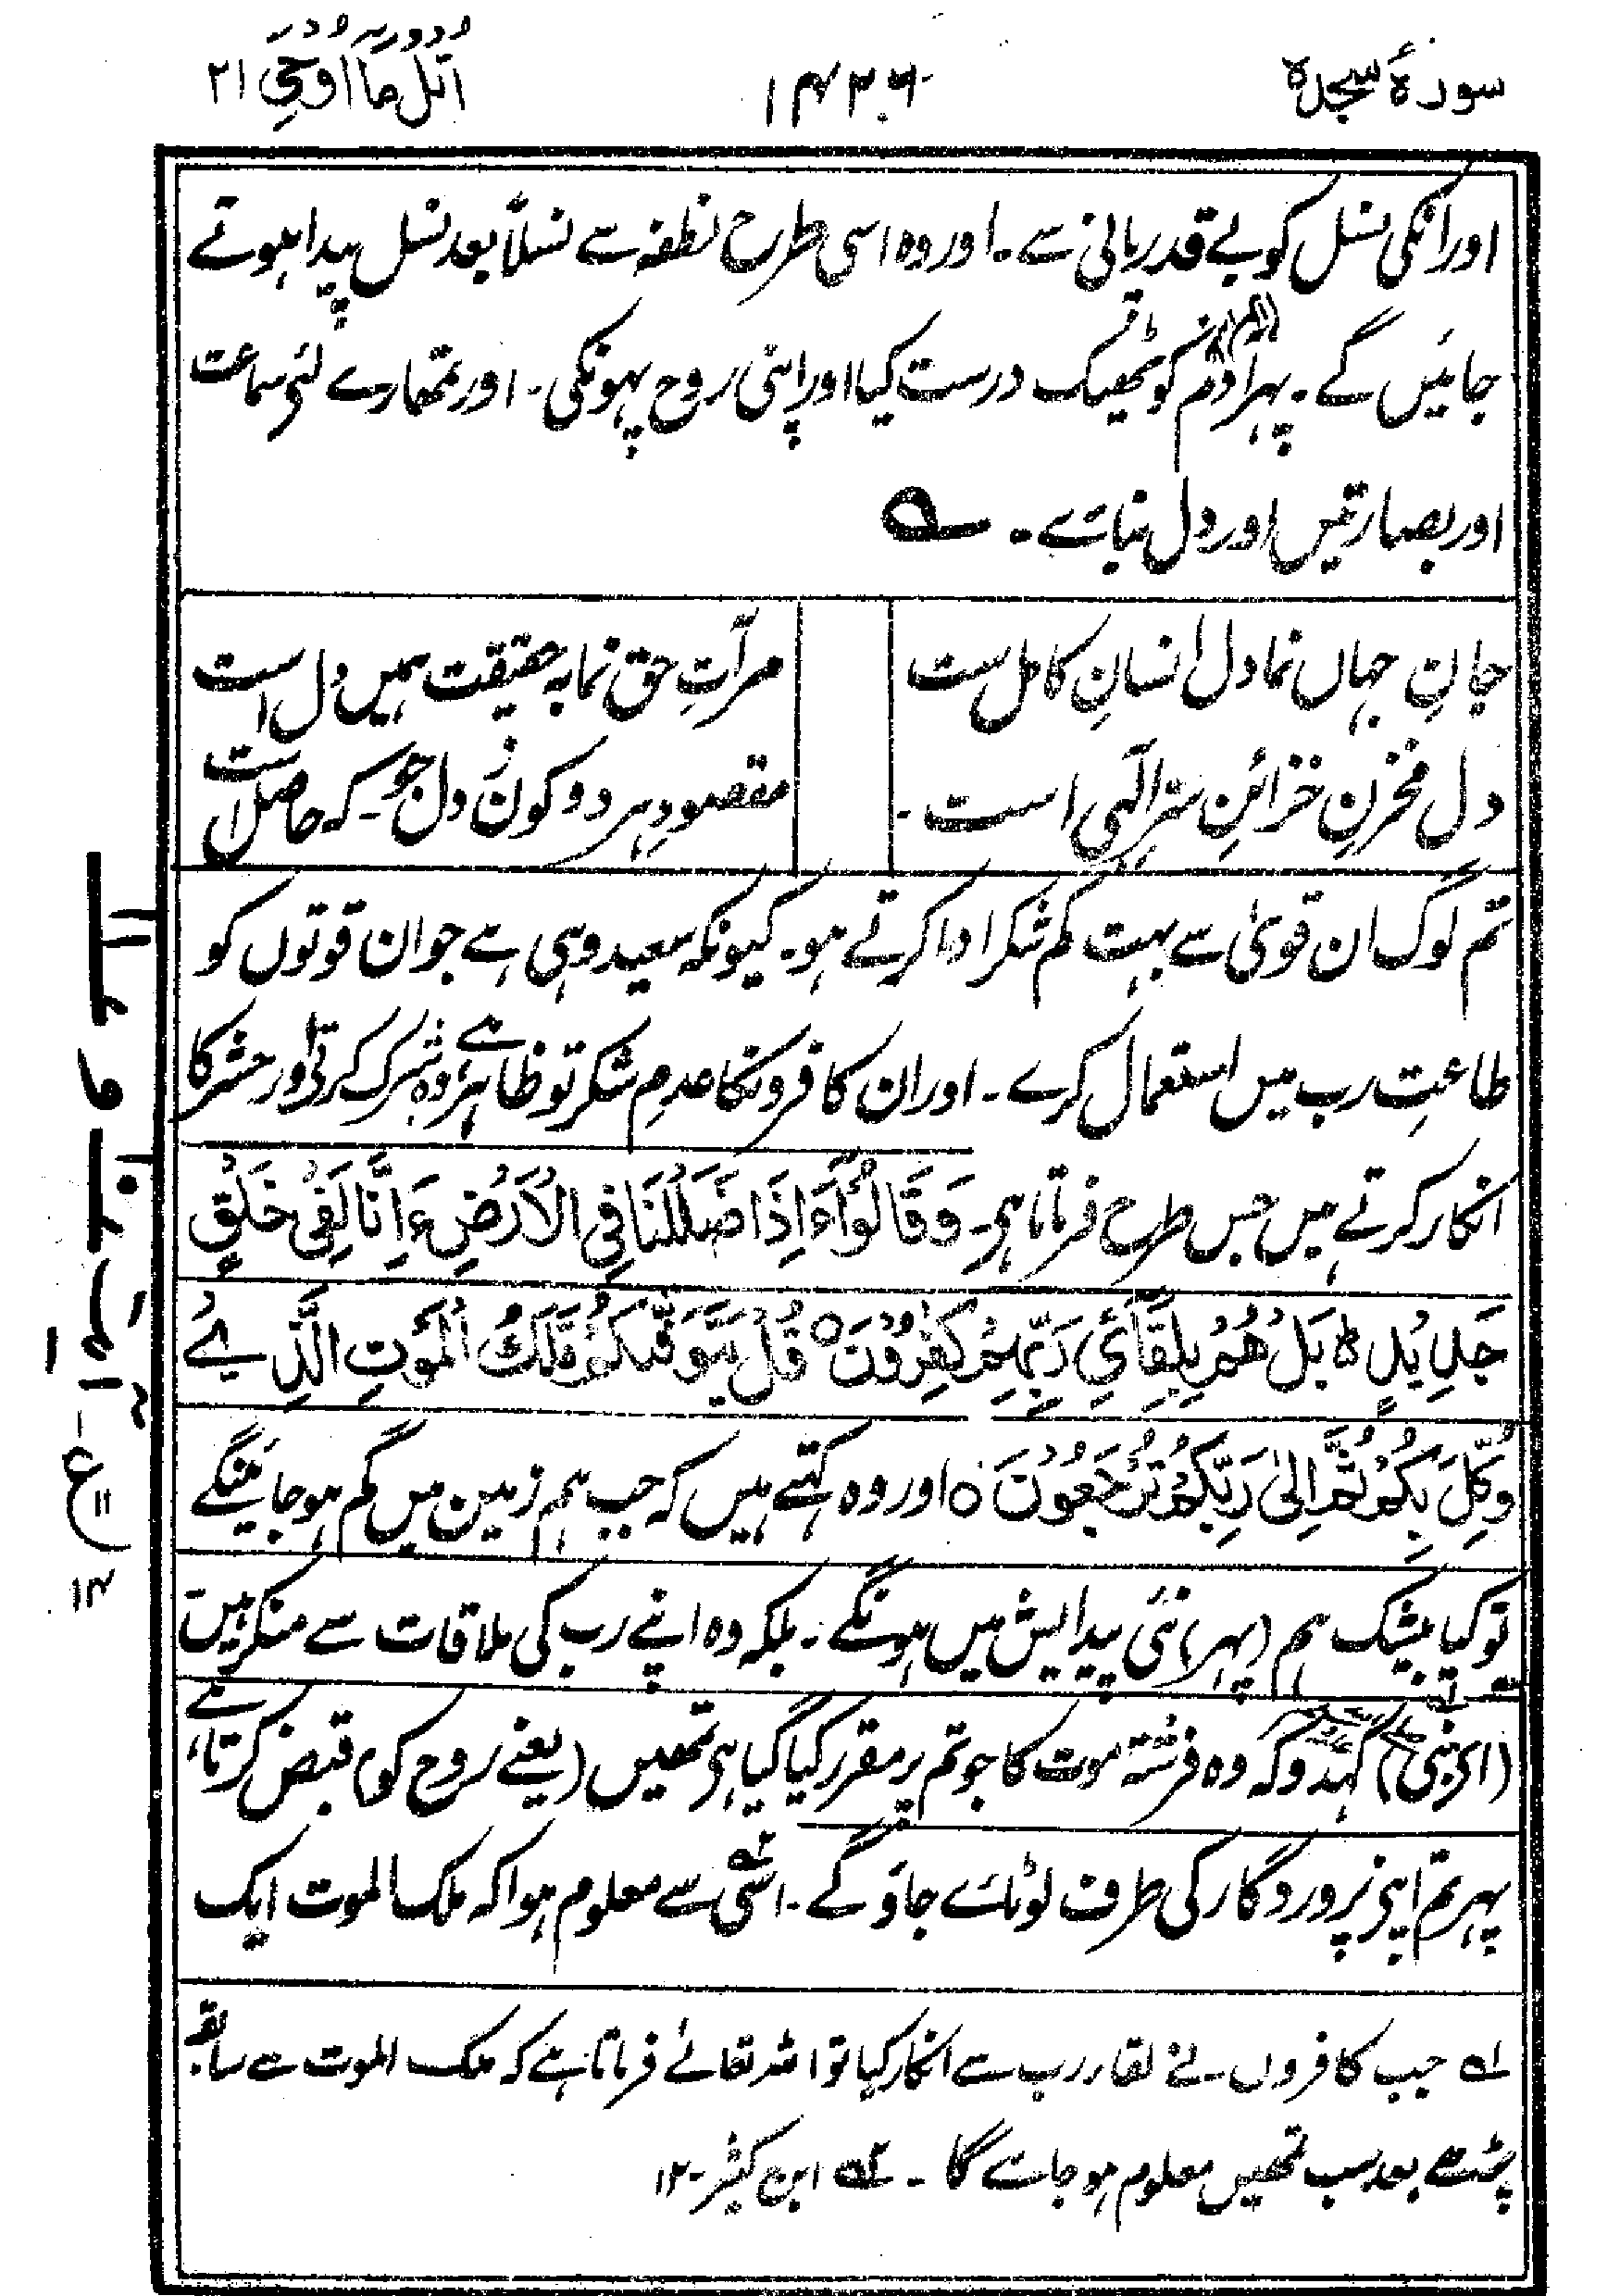 سورۂ سجدہ
۱۴۲۶
اُتْلُ مَآ اُوْحِیَ ۲۱
اور انکی نسل کو بے قدر پانی سے۔ اور وہ اسی طرح نطفہ سے نسلاً بعد نسل پیدا ہوتے
جائیں گے۔ پہر آدم کو ٹھیک درست کیا اور اپنی روح پہونکی۔ اور تمھارے لئے سماعت
اور بصارتیں اور دل بنائے۔
جانِ جہاں نما دلِ انسانِ کامل ست
مرآتِ حق نما بہ حقیقت ہمیں دل است
دل مخزنِ خزائنِ سّرِ الٰہی است۔
مقصودِ ہر دو کون ز دل جو۔ کہ حاصل است
تم لوگ ان قویٰ سے بہت کم شکر ادا کرتے ہو۔ کیونکہ سعید وہی ہے جو ان قوتوں کو
طاعتِ رب میں استعمال کرے۔ اور ان کافرونکا عدمِ شکر تو ظاہر ہے، وہ شرک کرتے اور حشر کا
انکار کرتے ہیں جس طرح فرماتا ہی۔ وَقَالُوْٓا ءَاِذَا ضَلَلْنَا فِی الْاَرْضِ ءَاِنَّا لَفِیْ خَلْقٍ
جَدِیْدٍ ط بَلْ هُمْ بِلِقَآئِ رَبِّهِمْ كٰفِرُوْنَ ۝ قُلْ یَتَوَفّٰىكُمْ مَّلَكُ الْمَوْتِ الَّذِیْ
وُكِّلَ بِكُمْ ثُمَّ اِلٰی رَبِّكُمْ تُرْجَعُوْنَ ۝ اور وہ کہتے ہیں کہ جب ہم زمین میں گم ہو جائینگے
تو کیا بیشک ہم (پہر) نئی پیدایش میں ہونگے۔ بلکہ وہ اپنے رب کی ملاقات سے منکر ہیں
(ای نبی) کہدو کہ وہ فرشتہ موت کا جو تم پر مقرر کیا گیا ہی تمھیں (یعنے روح کو) قبض کرتا ہے،
پہر تم اپنے پروردگار کی طرف لوٹائے جاؤ گے۔ اسی سے معلوم ہوا کہ ملک الموت ایک
ع
۱۱
۱۴
لہ جب کافروں نے لقاء رب سے انکار کیا تو اللہ تعالےٰ فرماتا ہے کہ ملک الموت سے سابقہ
پڑنے بعد سب تمھیں معلوم ہو جائے گا۔ ۲ہ ابن کثیر۔ ۱۲